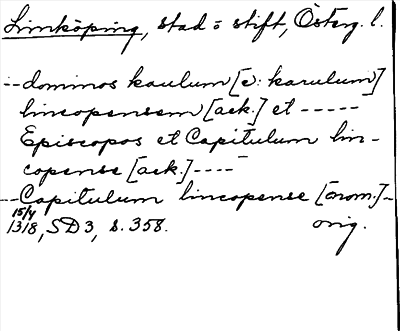 Linköping, stad o stift, Österg. l.
--dominos kaulum [ɔ: karulum]
lincopensem [ack.] et -----
Episcopos et Capitulum lin-
copense [ack.]----
--Capitulum lincopense [nom.]-
15/4
1318, SD3, s. 358. orig.